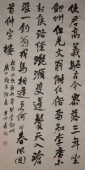 使君高義驅今古寥落三年坐
劍州但見文翁能化俗焉知李廣未
封侯路經灩澦雙蓬鬢天入滄
浪一釣舟戎馬相逢更何日春風回
首仲宣樓